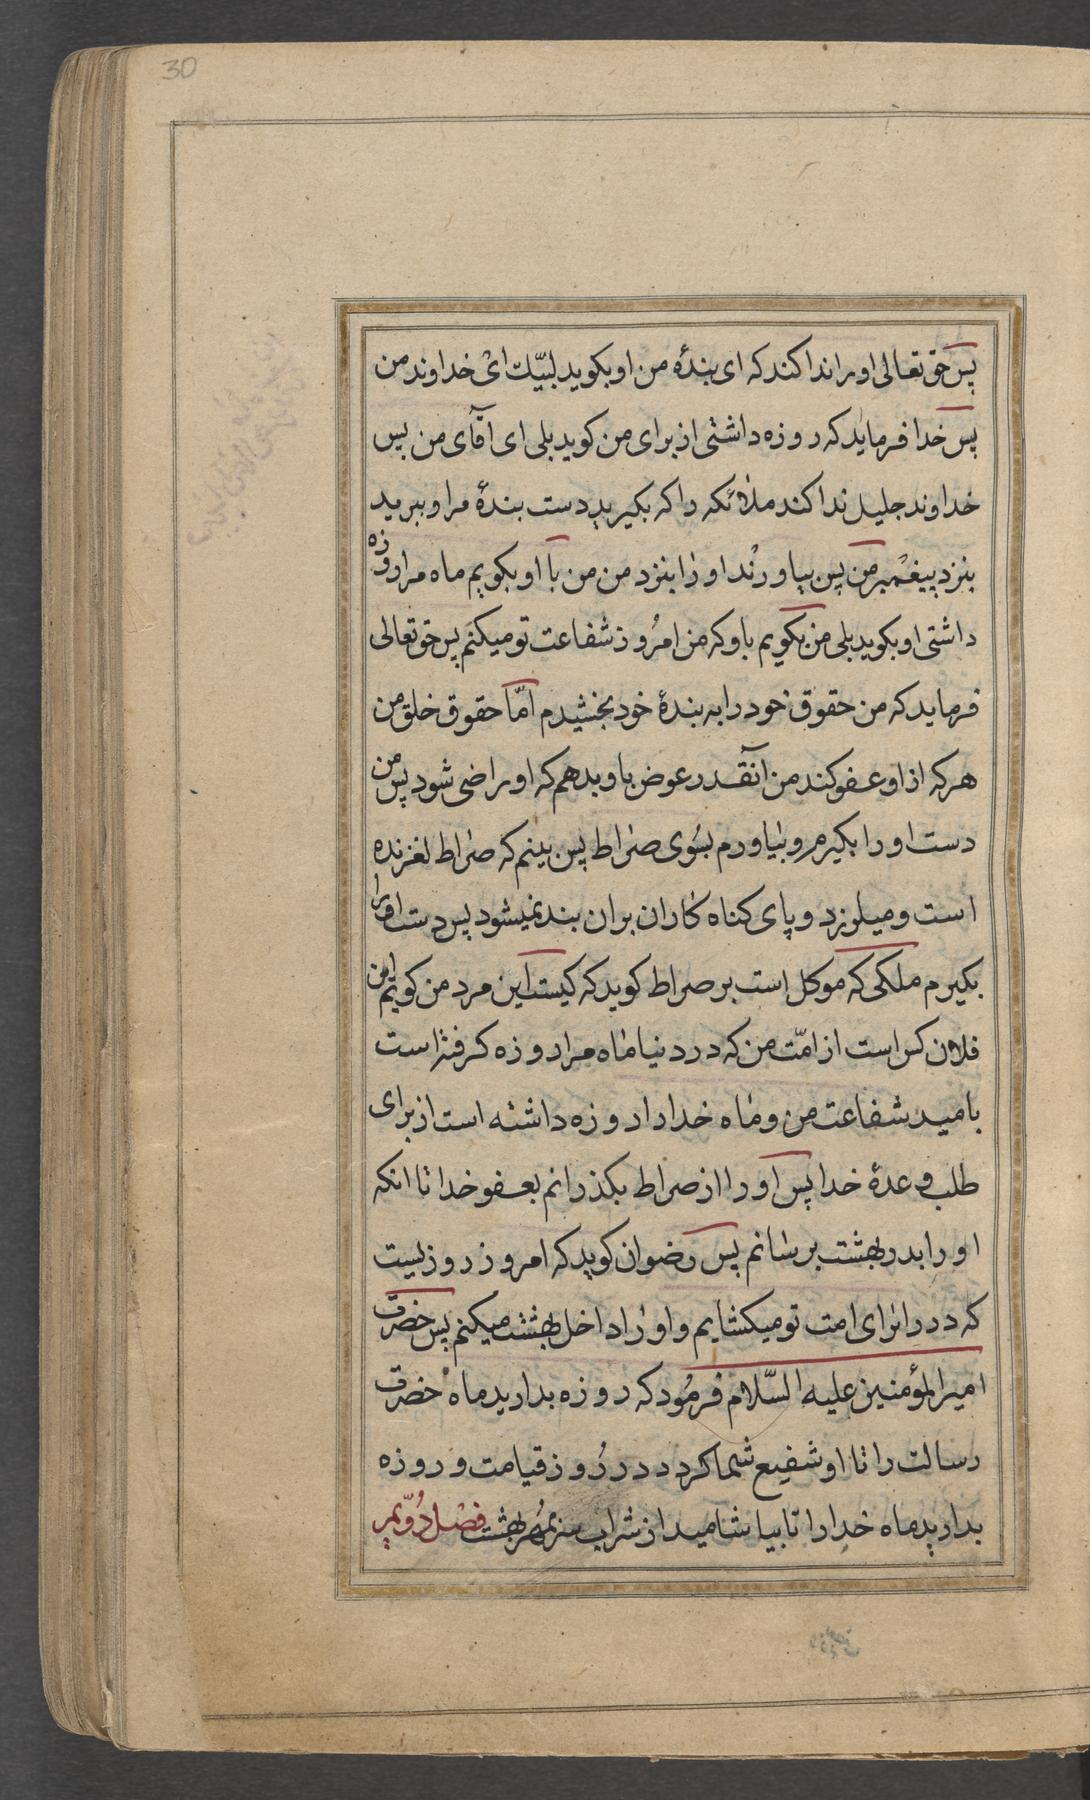 30
پس حق تعالی او را ندا کند که ای بندهٔ من او بکوید لبّیك ای خداوند من
پس خدا فرماید که روزه داشتی از برای من کوید بلی ای آقای من پس
خداوند جلیل ندا کند ملائکه را که بکیرید دست بندهٔ مرا و ببرید
بنزد پیغمبر من پس بیاورند او را بنزد من من با او بکویم ماه مرا روزه
داشتی او بکوید بلی من بکویم باو که من امروز شفاعت تو میکنم پس حق تعالی
فرماید که من حقوق خود را به بندهٔ خود بخشیدم امّا حقوق خلق من
هر که از او عفو کند من آنقدر عوض باو بدهم که او راضی شود پس من
دست او را بکیرم و بیاورم بسوی صراط پس بینم که صراط لغزنده
است و میلرزد و پای کناه کاران بر ان بند نمیشود پس دست او را
بکیرم ملکی که موکل است بر صراط کوید که کیست این مرد من کویم این
فلان کس است از امّت من که در دنیا ماه مرا روزه کرفته است
بامید شفاعت من و ماه خدا را روزه داشته است از برای
طلب وعدهٔ خدا پس او را از صراط بکذرانم بعفو خدا تا انکه
او را بدر بهشت برسانم پس رضوان کوید که امروز روزیست
که در را برای امت تو میکشایم و او را داخل بهشت میکنم پس حضرت
امیر المؤمنین علیه السّلام فرمود که روزه بدارید ماه حضرت
رسالت را تا او شفیع شما کردد در روز قیامت و روزه
بدارید ماه خدا را تا بیاشامید از شراب سر بمهر بهشت فصل دُوّیم